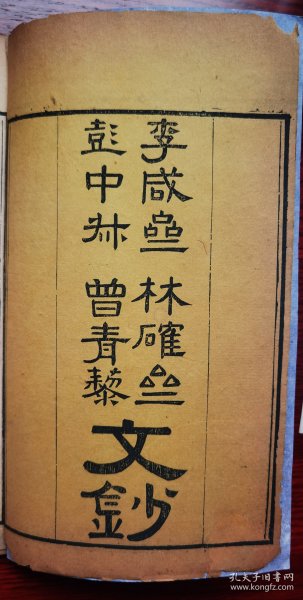 李咸亝 林確亝
彭中尗 曾青藜
文鈔
孔夫子旧书网
www.kongfz.com